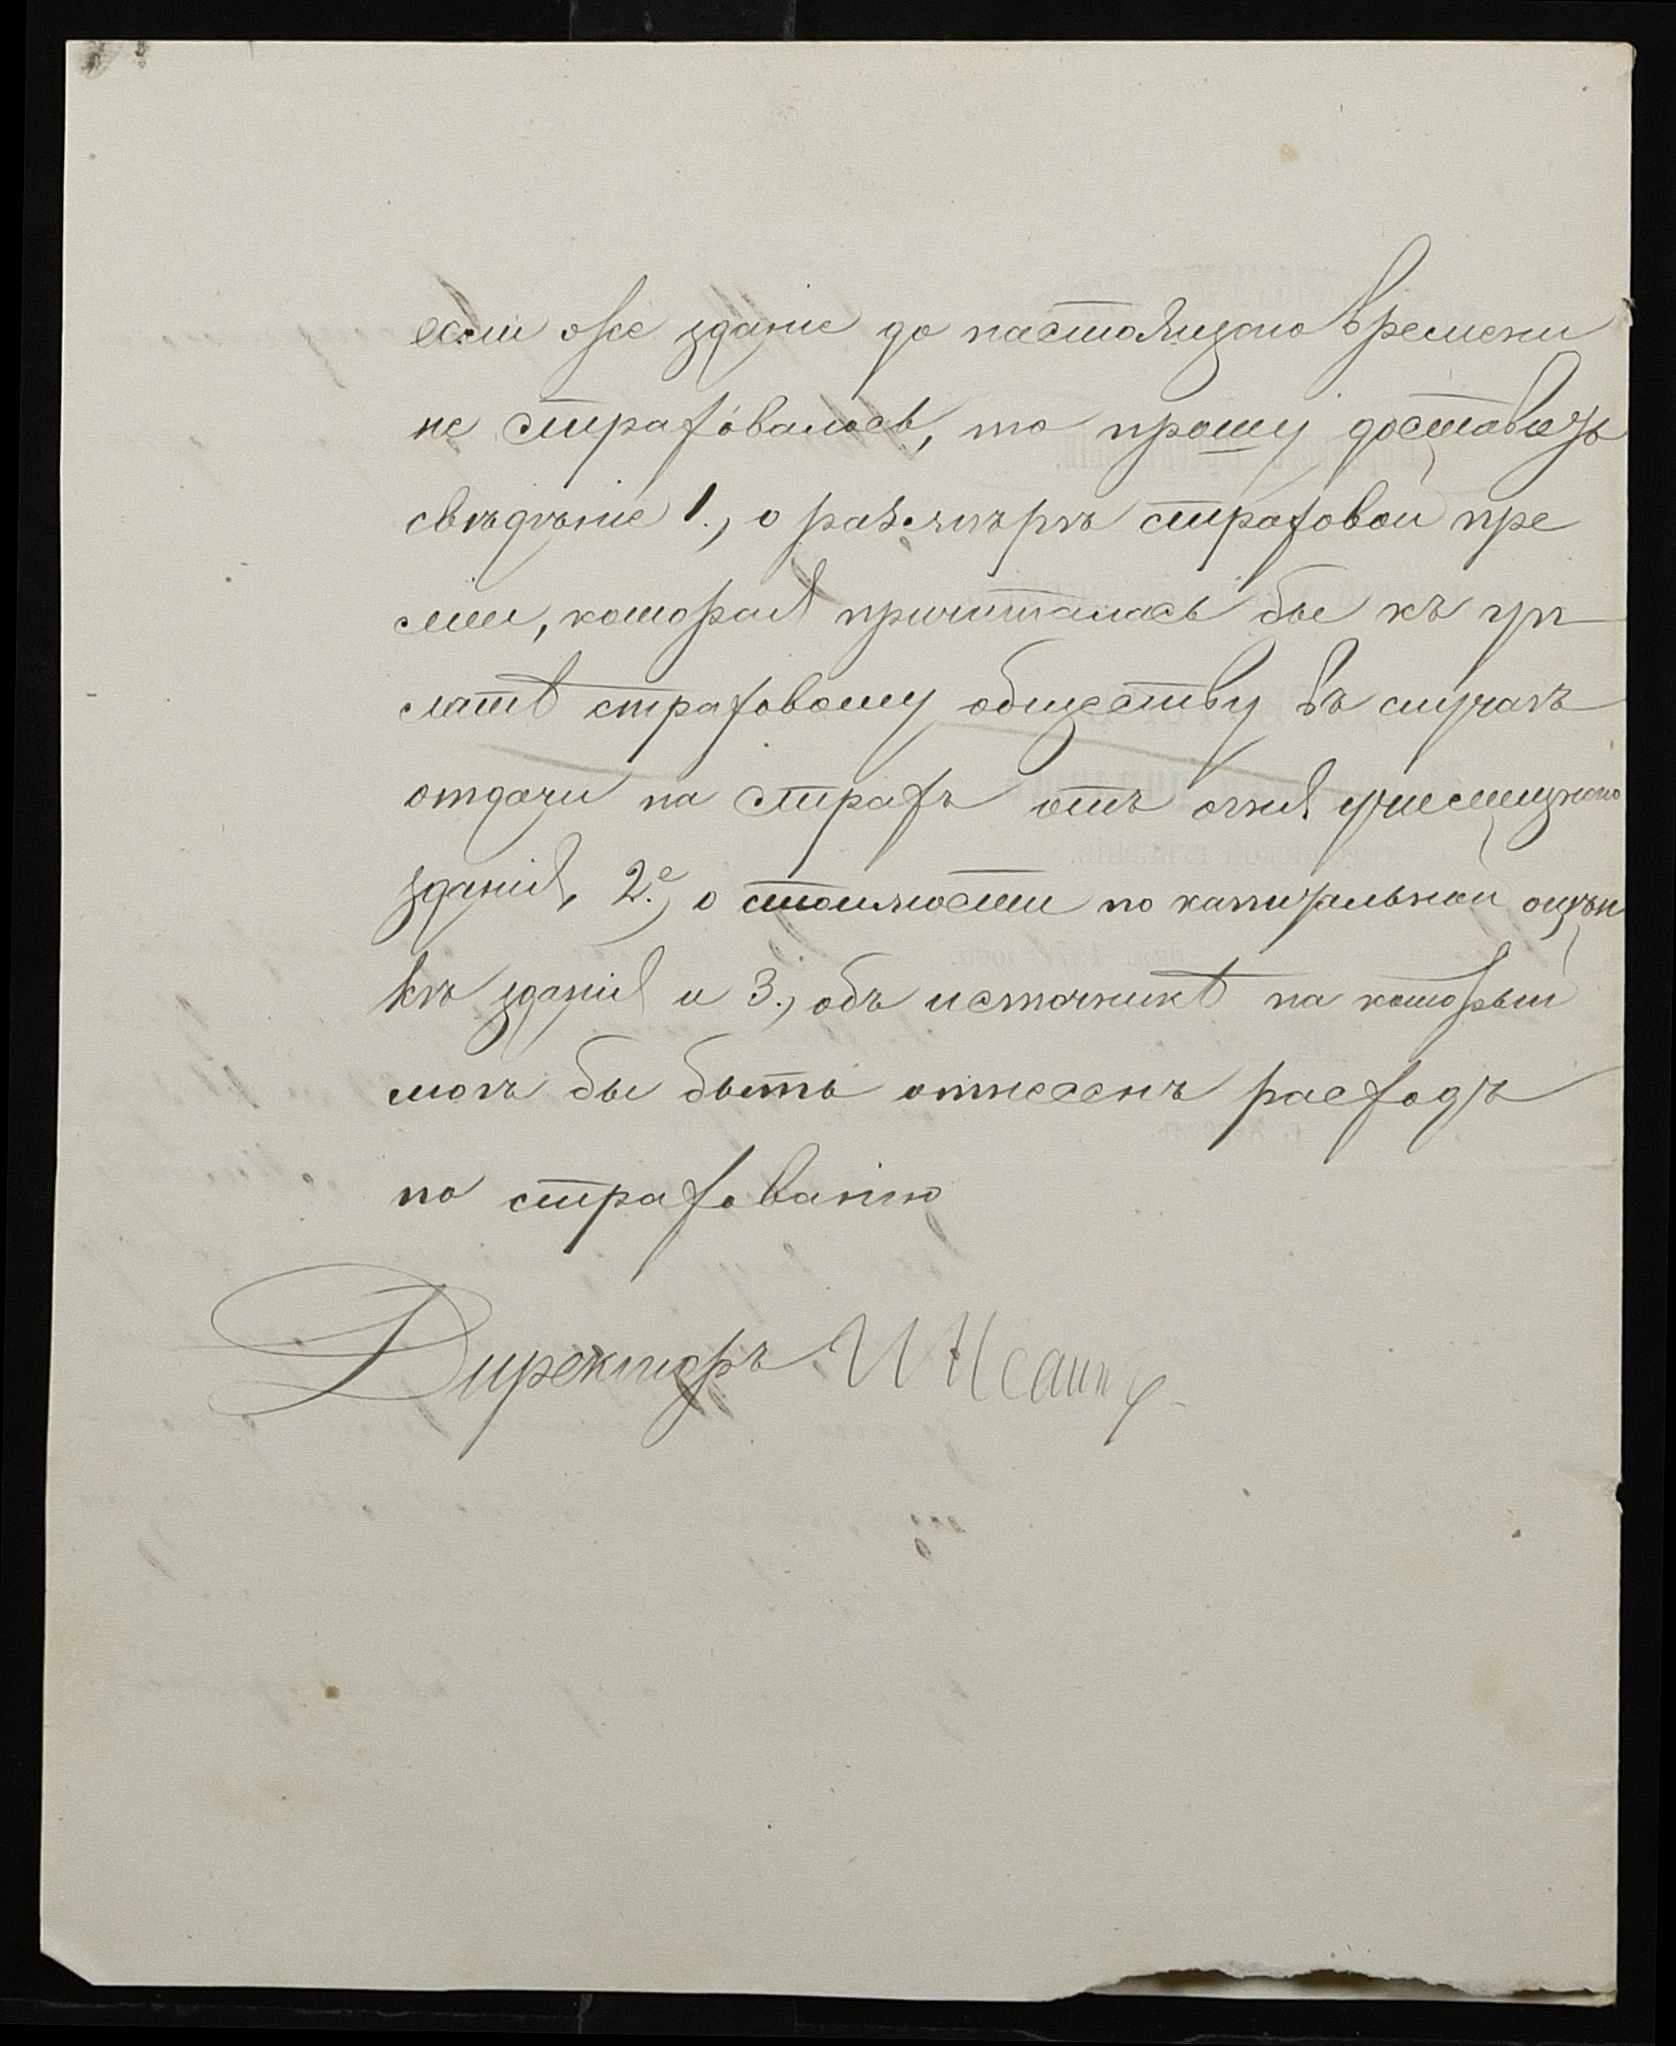 если же зданіе до настоящаго времени
не страховалось, то прошу доставить
свѣдѣніе 1., о размѣрѣ страховой пре
міи, которая причиталась бы къ уп
латѣ страховому обществу въ случаѣ
отдачи на страхъ отъ огня училищнаго
зданія, 2е., о стоимости по капитальной оцѣн
кѣ зданія и 3., объ источникѣ на который
могъ бы быть отнесенъ расходъ
по страхованію
Директоръ И